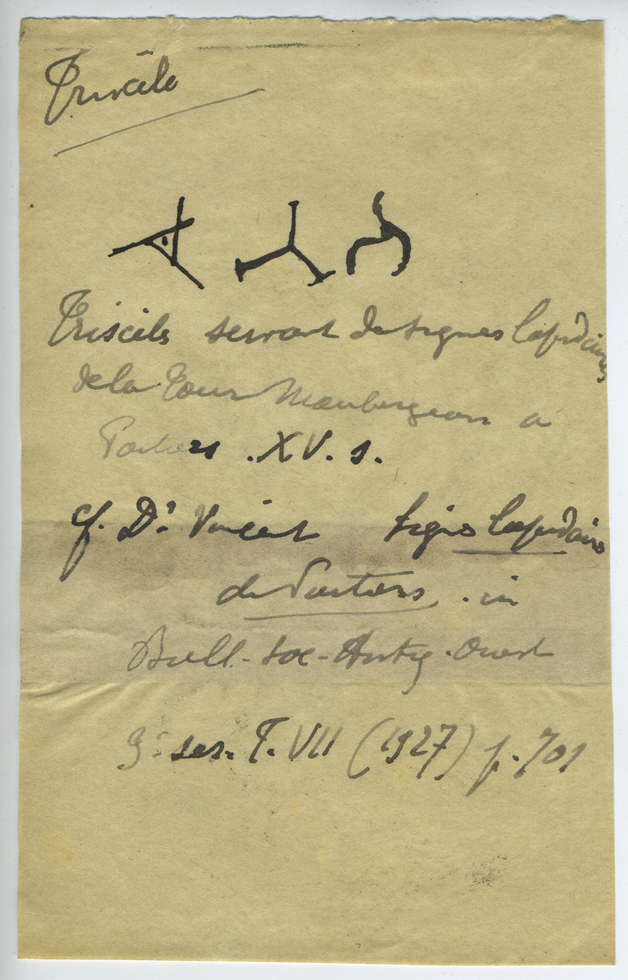 Triscèle
Triscèles servant de signes lapidaires
de la Tour Maubergeon à
Poitiers . XV. s.
cf. Dr Vincent Signes lapidaires
de Poitiers . in
Bull. Soc. Antiq. Ouest
3e ser. T. VII (1927) p. 701